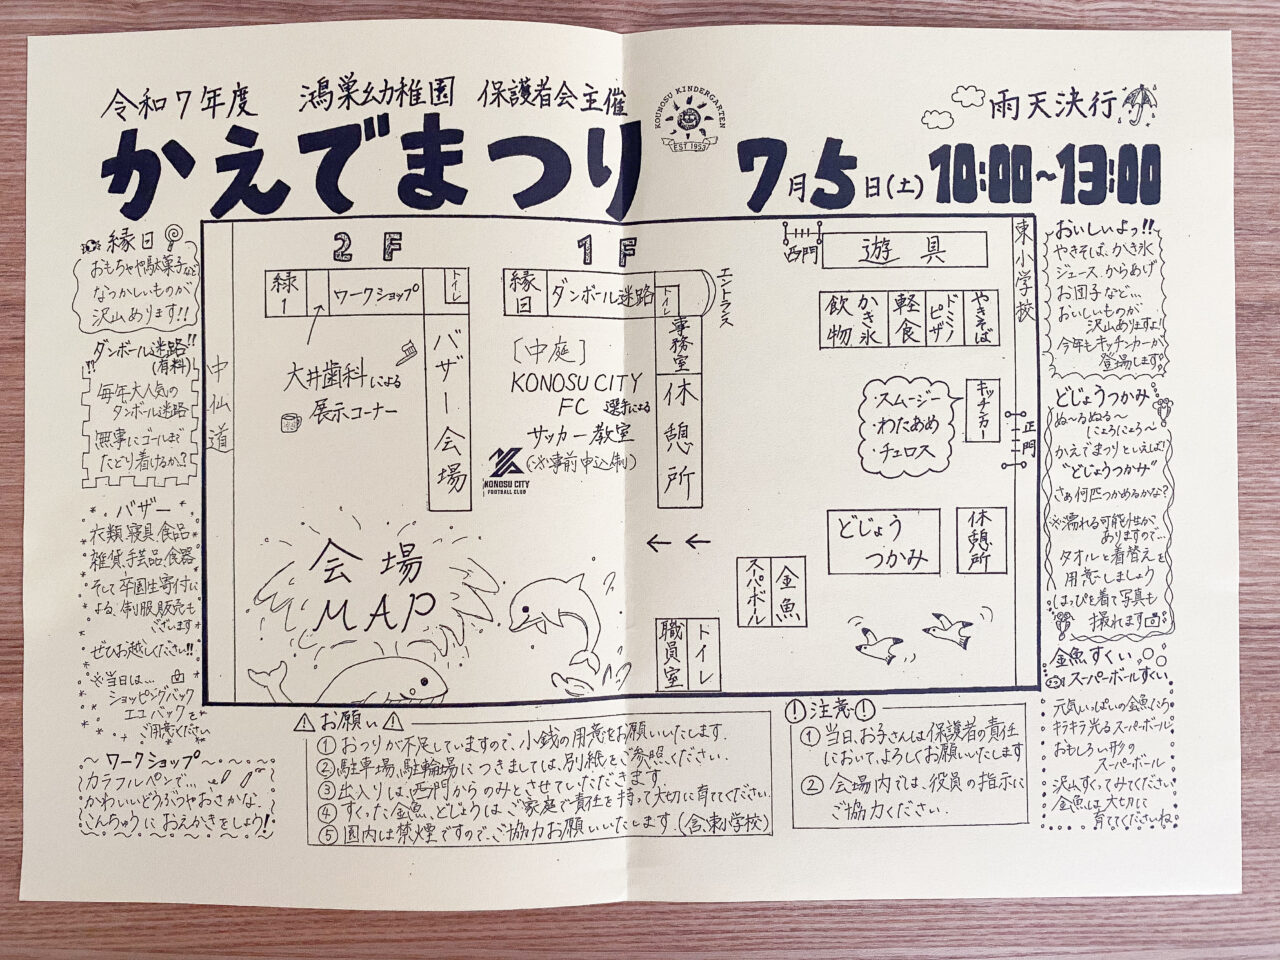 令和7年度 鴻巣幼稚園 保護者会主催
KOUNOSU KINDERGARTEN
EST 1953
雨天決行
かえでまつり 7月5日(土) 10:00~13:00
縁日
おもちゃや駄菓子など
なつかしいものが
沢山あります!!
ダンボール迷路!!
(有料)
毎年大人気の
ダンボール迷路
無事にゴールまで
たどり着けるか?
バザー
衣類、寝具、食品
雑貨、手芸品、食器
そして卒園生寄付に
よる、制服販売も
ございます
ぜひお越しください!!
※当日は…
ショッピングバック
エコバックを
ご用意ください
~ワークショップ~
カラフルペンで…
かわいいどうぶつやおさかな、
こんちゅうにおえかきをしよう!
中仙道
2F
縁1
ワークショップ
トイレ
バザー会場
大井歯科による
展示コーナー
1F
縁日
ダンボール迷路
トイレ
エントランス
事務室
休憩所
[中庭]
KONOSU CITY
FC 選手による
サッカー教室
(※事前申込制)
KONOSU CITY
FOOTBALL CLUB
会場
MAP
西門
遊具
東小学校
飲物
かき氷
軽食
ドミノピザ
やきそば
キッチンカー
・スムージー
・わたあめ
・チェロス
正門
どじょう
つかみ
休憩所
スーパーボール
金魚
職員室
トイレ
おいしいよっ!!
やきそば、かき氷
ジュース、からあげ
お団子など…
おいしいものが
沢山ありますよ!
今年もキッチンカーが
登場します。
どじょうつかみ
ぬ~るぬる~
にょろにょろ~
かえでまつりといえば!
"どじょうつかみ"
さぁ何匹つかめるかな?
※濡れる可能性が
ありますので…
タオルと着替えを
用意しましょう
はっぴを着て写真も
撮れます
金魚すくい
スーパーボールすくい
元気いっぱいの金魚たち
キラキラ光るスーパーボール
おもしろい形の
スーパーボール
沢山すくってみてください
金魚は大切に
育ててくださいね
お願い
①おつりが不足していますので、小銭の用意をお願いいたします。
②駐車場、駐輪場につきましては、別紙をご参照ください。
③出入りは、西門からのみとさせていただきます
④すくった金魚、どじょうはご家庭で責任を持って大切に育ててください。
⑤園内は禁煙ですので、ご協力お願いいたします。(含、東小学校)
注意
①当日、お子さんは保護者の責任
において、よろしくお願いいたします
②会場内では、役員の指示に
ご協力ください。